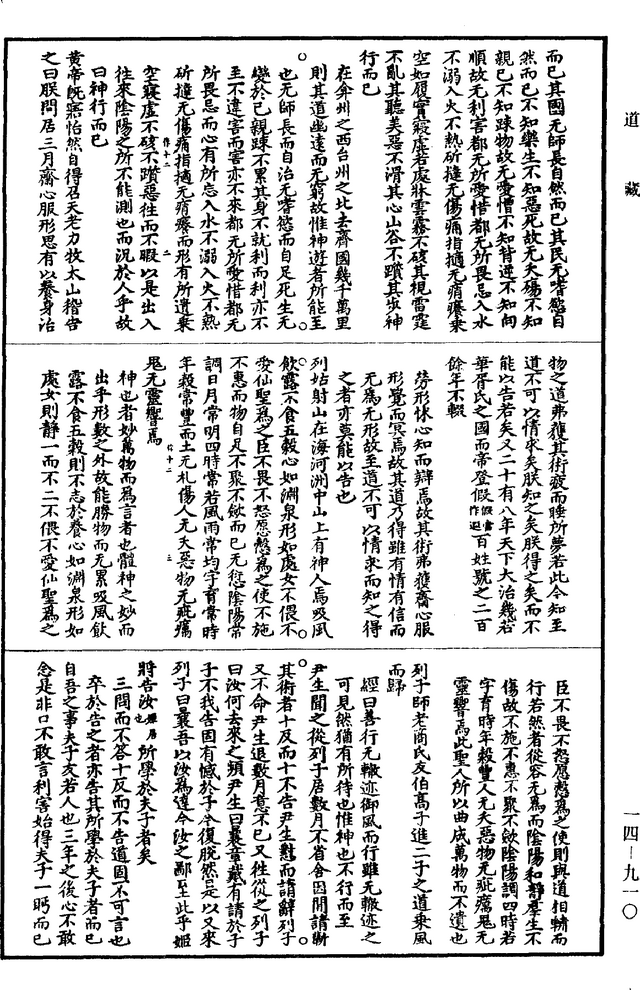 道藏
而已其國无師長自然而已其民无嗜慾自
然而已不知樂生不知惡死故无夭殤不知
親已不知踈物故无愛憎不知背逆不知向
順故无利害都无所愛惜都无所畏忌入水
不溺入火不熱斫撻无傷痛指擿无痟癢乗
空如履實寢虛若處牀雲霧不硋其視雷霆
不亂其聽美惡不滑其心山谷不躓其步神
行而已
在弇州之西台州之北去齊國幾千萬里
則其道幽遠而无窮故惟神遊者所能至
也无師長而自治无嗜慾而自足死生无
變於已親踈不累其身不就利而利亦不
至不違害而害亦不來都无所愛惜都无
所畏忌而心有所忘入水不溺入火不熱
斫撻无傷痛指擿无痟癢而形有所遺乗
空寢虛不硋不躓惡往而不暇以是出入
往來陰陽之所不能測也而況於人乎故
曰神行而已
黄帝旣寤怡然自得召天老力牧太山稽告
之曰朕閒居三月齋心服形思有以養身治
物之道弗獲其術疲而睡所夢若此今知至
道不可以情求矣朕知之矣朕得之矣而不
能以告若矣又二十有八年天下大治幾若
華胥氏之國而帝登假假當作遐百姓號之二百
餘年不輟
勞形怵心知而辯焉故其術弗獲齋心服
形覺而冥焉故其道乃得雖有情有信而
无爲无形故至道不可以情求而知之得
之者亦莫能以告也
列姑射山在海河洲中山上有神人焉吸風
飲露不食五穀心如淵泉形如處女不偎不
愛仙聖爲之臣不畏不怒愿慤爲之使不施
不惠而物自足不聚不歛而已无愆陰陽常
調日月常明四時常若風雨常均字育常時
年穀常豐而土无札傷人无夭惡物无疵癘
鬼无靈響焉
神也者妙萬物而爲言者也體神之妙而
出乎形數之外故能勝物而无累吸風飲
露不食五穀則不志於養心如淵泉形如
處女則靜一而不二不偎不愛仙聖爲之
臣不畏不怒愿慤爲之使則與道相轃而
行若然者從容无爲而陰陽和靜羣生不
傷故不施不惠不聚不歛陰陽調四時若
字育時年穀豐人无夭惡物无疵癘鬼无
靈響焉此聖人所以曲成萬物而不遺也
列子師老商氏友伯髙子進二子之道乗風
而歸
經曰善行无轍迹御風而行雖无轍迹之
可見然猶有所待也惟神也不行而至
尹生聞之從列子居數月不省舍因閒請蘄
其術者十反而十不告尹生懟而請辭列子
又不命尹生退數月意不已又徃從之列子
曰汝何去來之頻尹生曰曩章戴有請於子
子不我告固有憾於子今復脫然是以又來
列子曰曩吾以汝爲達今汝之鄙至此乎姬
將告汝姬居也所學於夫子者矣
三問而不答十反而不告道固不可言也
卒於告之者亦告其所學於夫子者而已
自吾之事夫子友若人也三年之後心不敢
念是非口不敢言利害始得夫子一眄而已
一四—九一〇